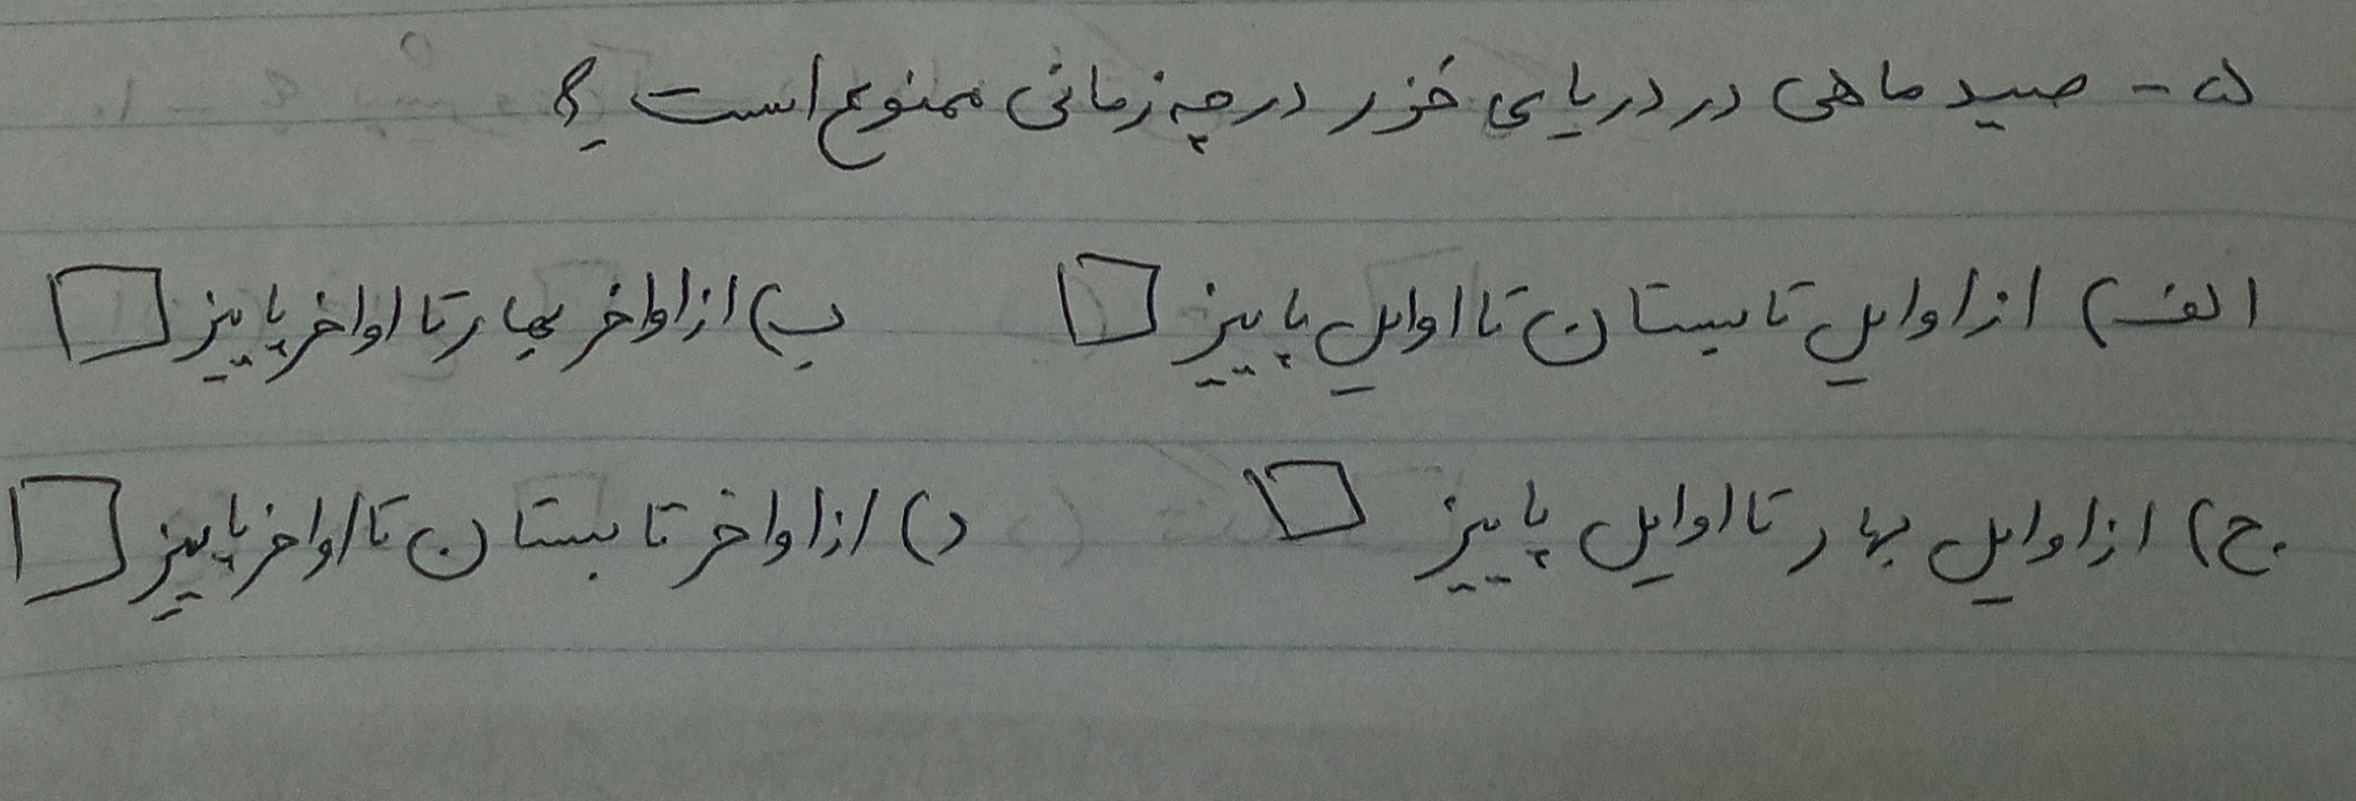 ۵- صید ماهی در دریای خزر در چه زمانی ممنوع است؟
الف) از اوایل تابستان تا اوایل پاییز ب) از اواخر بهار تا اواخر پاییز
ج) از اوایل بهار تا اوایل پاییز د) از اواخر تابستان تا اواخر پاییز